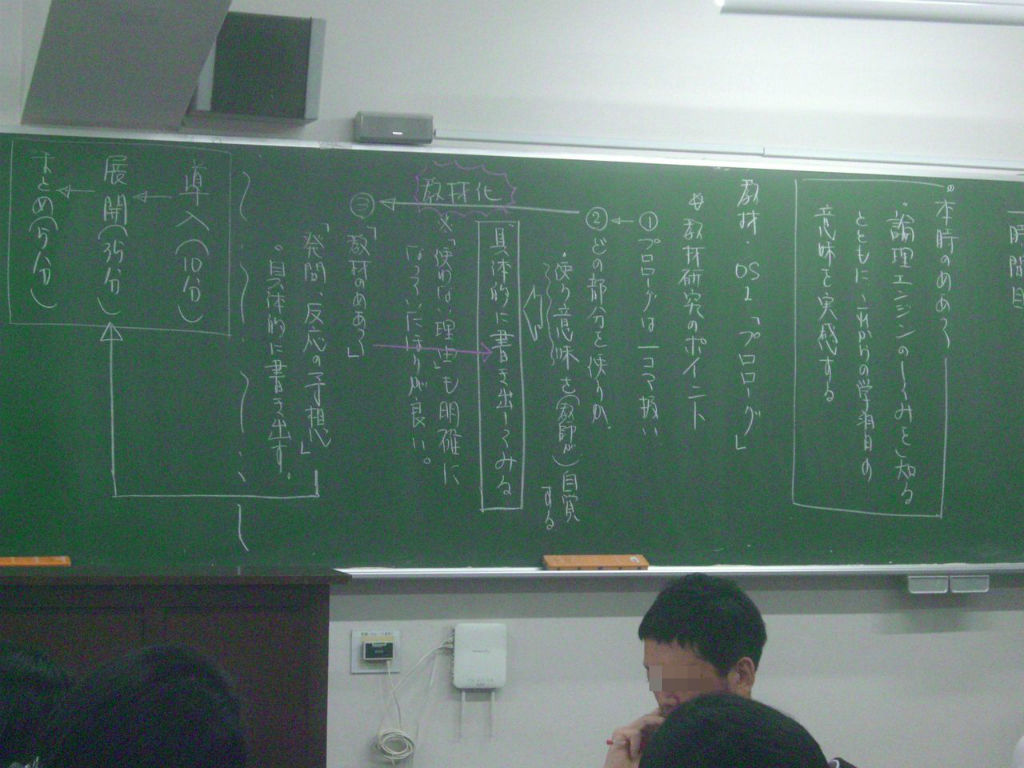 一時間目
・本時のめあて
・論理エンジンのしくみを知る
とともに、これからの学習の
意味を実感する
教材・OS1「プロローグ」
教材研究のポイント
①プロローグは一コマ扱い
②どの部分を使うのか。
・使う意味を(教師が)自覚
する
具体的に書き出してみる
教材化
※「使わない理由」も明確に
しておいたほうが良い。
③
「教材のめあて」
「発問、反応の予想」
・具体的に書き出す。
導入(10分)
展開(35分)
まとめ(5分)